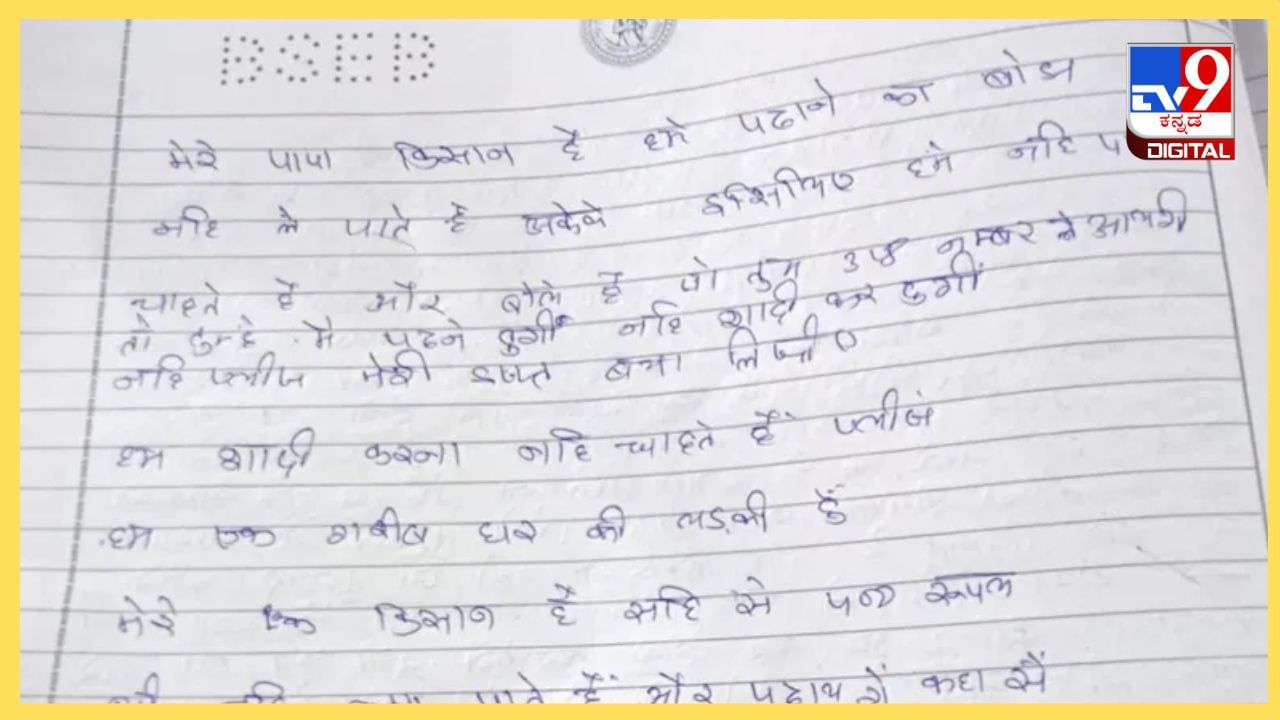 BSEB
TV9
ಕನ್ನಡ
DIGITAL
मेरे पापा किसान है हमे पढाने का बोझ
नहि ले पाते है इसिलिए हमे नहि
चाहते है और बोले है तुम 318 नम्बर से आयगी
तो तुम्हे मै पढने दुगीं नहि शादी कर दुगीं
नहि प्लीज मेरी इज्जत बचा लिजीए
हम शादी करना नहि चाहते हैं प्लीजं
हम एक गरीब घर की लडकी हुँ
मेरे एक किसान है सहि से रूपल
पाते हैं और कहा सें